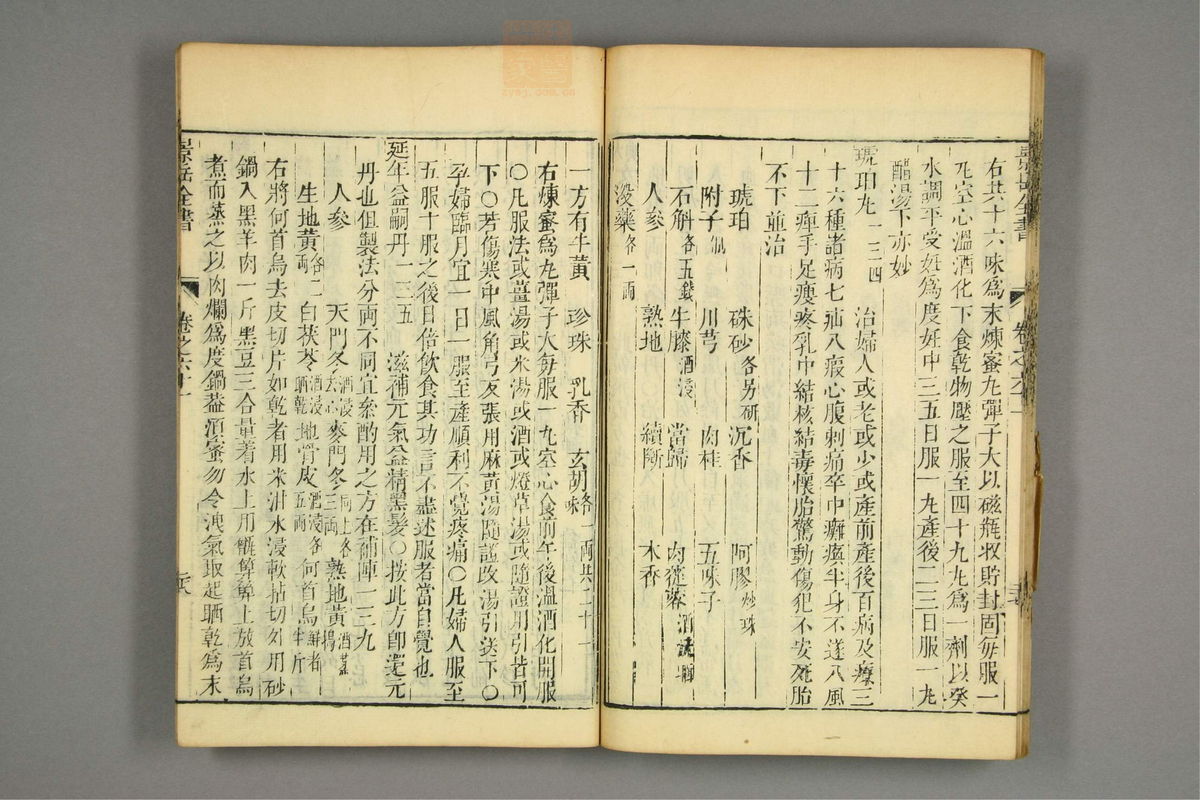 右共十六味爲末煉蜜丸彈子大以磁瓶收貯封固每服一
丸空心溫酒化下食乾物壓之服至四十九丸爲一劑以癸
水調平受姙爲度姙中三五日服一丸產後二三日服一丸
醋湯下亦妙
琥珀丸 一三四 治婦人或老或少或產前產後百病及療三
十六種諸病七疝八瘕心腹刺痛卒中癱瘓半身不遂八風
十二痺手足痠疼乳中結核結毒懷胎驚動傷犯不安死胎
不下並治
琥珀 硃砂各另研 沉香 阿膠炒珠
附子製 川芎 肉桂 五味子
石斛各五錢 牛膝酒浸 當歸 肉蓯蓉酒洗曬
人參 熟地 續斷 木香
沒藥各一兩
一方有牛黃 珍珠 乳香 玄胡各一兩共二十一味
右煉蜜爲丸彈子大每服一丸空心食前午後溫酒化開服
○凡服法或薑湯或米湯或酒或燈草湯或隨證用引皆可
下○若傷寒中風角弓反張用麻黃湯隨證改湯引送下○
孕婦臨月宜一日一服至產順利不覺疼痛○凡婦人服至
五服十服之後日倍飲食其功言不盡述服者當自覺也
延年益嗣丹 一三五 滋補元氣益精黑髮○按此方卽還元
丹也但製法分兩不同宜參酌用之方在補陣一三九
人參 天門冬酒浸去心 麥門冬同上各三兩 熟地黃酒蒸搗
生地黃各二兩 白茯苓酒浸晒乾 地骨皮酒浸各五兩 何首烏鮮者半斤
右將何首烏去皮切片如乾者用米泔水浸軟括切外用砂
鍋入黑羊肉一斤黑豆三合量著水上用甑箅箅上放首烏
煮而蒸之以肉爛爲度鍋葢須蜜勿令洩氣取起晒乾爲末
景岳全書
卷之六十一